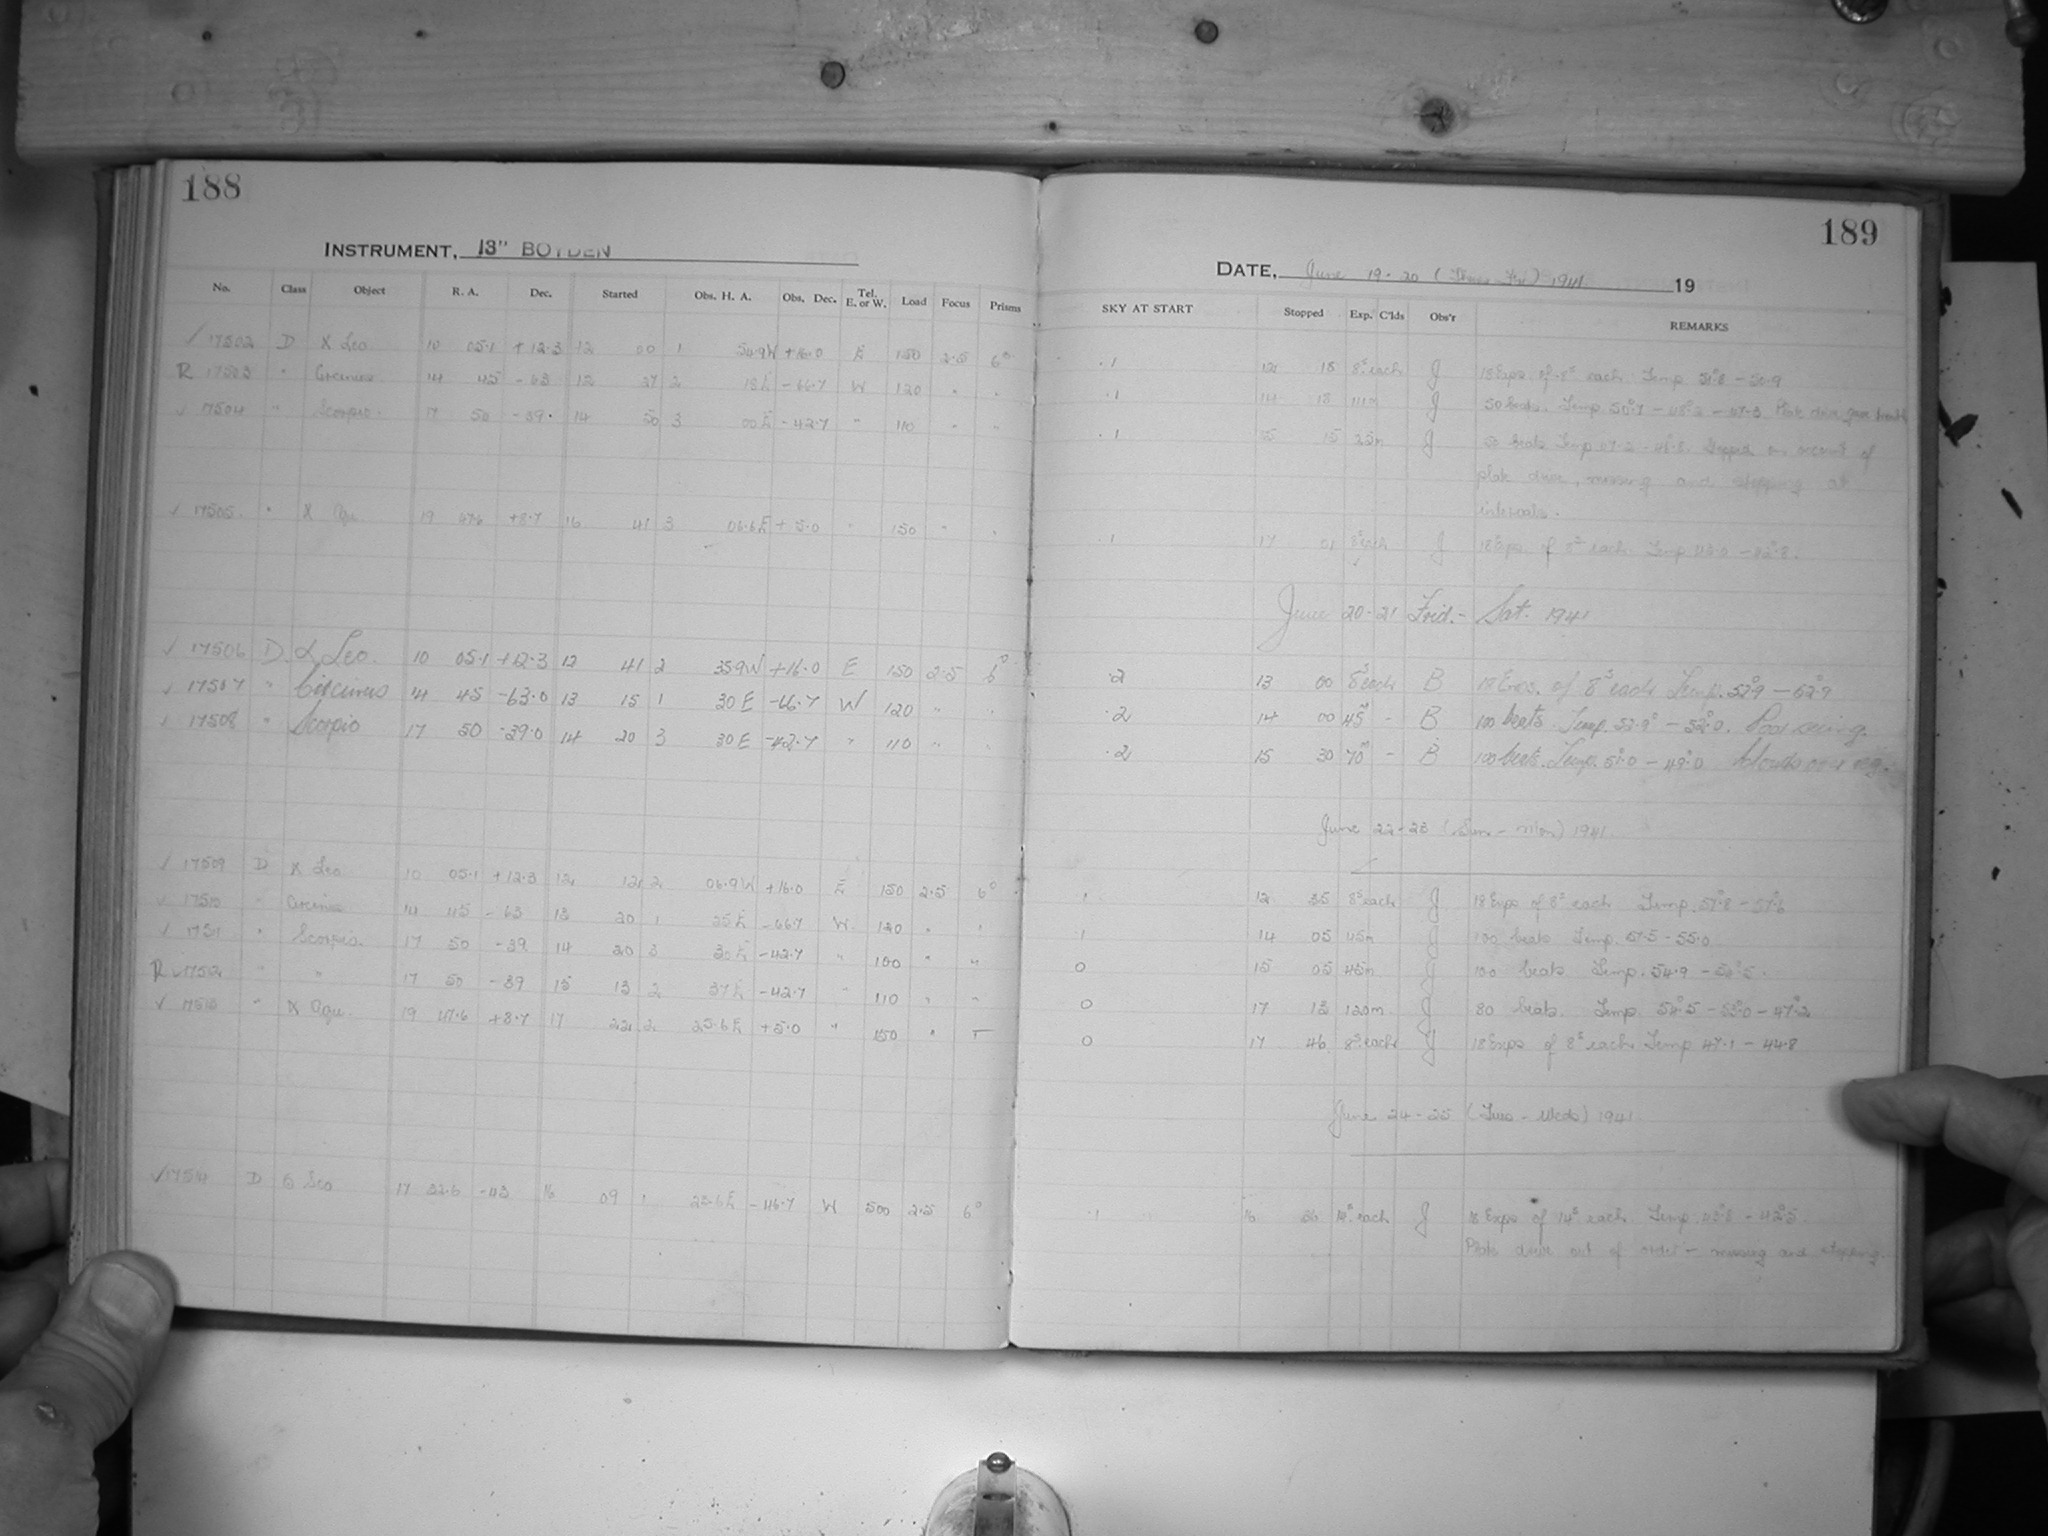 188
INSTRUMENT, 13" BOYDEN
No. Class Object R. A. Dec. Started Obs. H. A. Obs. Dec. Tel. E. or W. Load Focus Prisms
✓ 17502 D α Leo 10 05.1 +12.3 12 00 1 54.9W +16.0 E 150 2.5 6°
R 17503 " Circinus 14 45 -63 12 27 2 18E -66.7 W 120 " "
✓ 17504 " Scorpio. 17 50 -39. 14 50 3 00E -42.7 " 110 " "
✓ 17505 " α Aqu. 19 47.6 +8.7 16 41 3 06.6E +5.0 " 150 " "
✓ 17506 D α Leo. 10 05.1 +12.3 12 41 2 35.9W +16.0 E 150 2.5 6°
✓ 17507 " Circinus 14 45 -63.0 13 15 1 30E -66.7 W 120 " "
✓ 17508 " Scorpio 17 50 -39.0 14 20 3 30E -42.7 " 110 " "
✓ 17509 D α Leo 10 05.1 +12.3 12 12 2 06.9W +16.0 E 150 2.5 6°
✓ 17510 " Circinus 14 45 -63 13 20 1 25E -66.7 W. 120 " "
✓ 17511 " Scorpio. 17 50 -39 14 20 3 30E -42.7 " 100 " "
R ✓ 17512 " " 17 50 -39 15 13 2 37E -42.7 " 110 " "
✓ 17513 " α Aqu. 19 47.6 +8.7 17 22 2 25.6E +5.0 " 150 "
✓ 17514 D Sco 17 32.6 -43 16 09 1 23.6E -46.7 W 500 2.5 6°
189
DATE, June 19-20 (Thurs-Fri) 1941 19
SKY AT START Stopped Exp. C'lds Obs'r REMARKS
.1 12 18 8s each J 18 Exps of 8s each Temp 51.8 - 50.9
.1 14 18 111m J 50 beats. Temp 50.7 - 48.2 - 47.3 Plate drive gave trouble
.1 15 15 25m J 50 beats Temp 47.2 - 46.8. Stopped on account of
plate drive, missing and stopping at
intervals.
.1 17 01 8s each J 18 Exps. of 8s each Temp 43.0 - 42.8.
June 20-21 Frid. - Sat. 1941
.2 13 00 8s each B 18 Exps. of 8s each Temp. 52.9 - 52.9
.2 14 00 45m - B 100 beats. Temp. 53.9° - 52.0. Poor seeing.
.2 15 30 70m - B 100 beats. Temp. 51.0 - 49.0 Clouds over reg.
June 22-23 (Sun - Mon) 1941
1 12 35 8s each J 18 Exps of 8s each Temp. 57.8 - 57.6
1 14 05 45m J 100 beats Temp. 57.5 - 55.0
0 15 05 45m J 100 beats Temp. 54.9 - 54.5.
0 17 13 120m J 80 beats. Temp. 54.5 - 53.0 - 47.2
0 17 46 8s each J 18 Exps of 8s each Temp 47.1 - 44.8
June 24-25 (Tues - Weds) 1941
.1 16 36 14s each J 18 Exps of 14s each Temp. 43.8 - 42.5.
Plate drive out of order - missing and stopping.